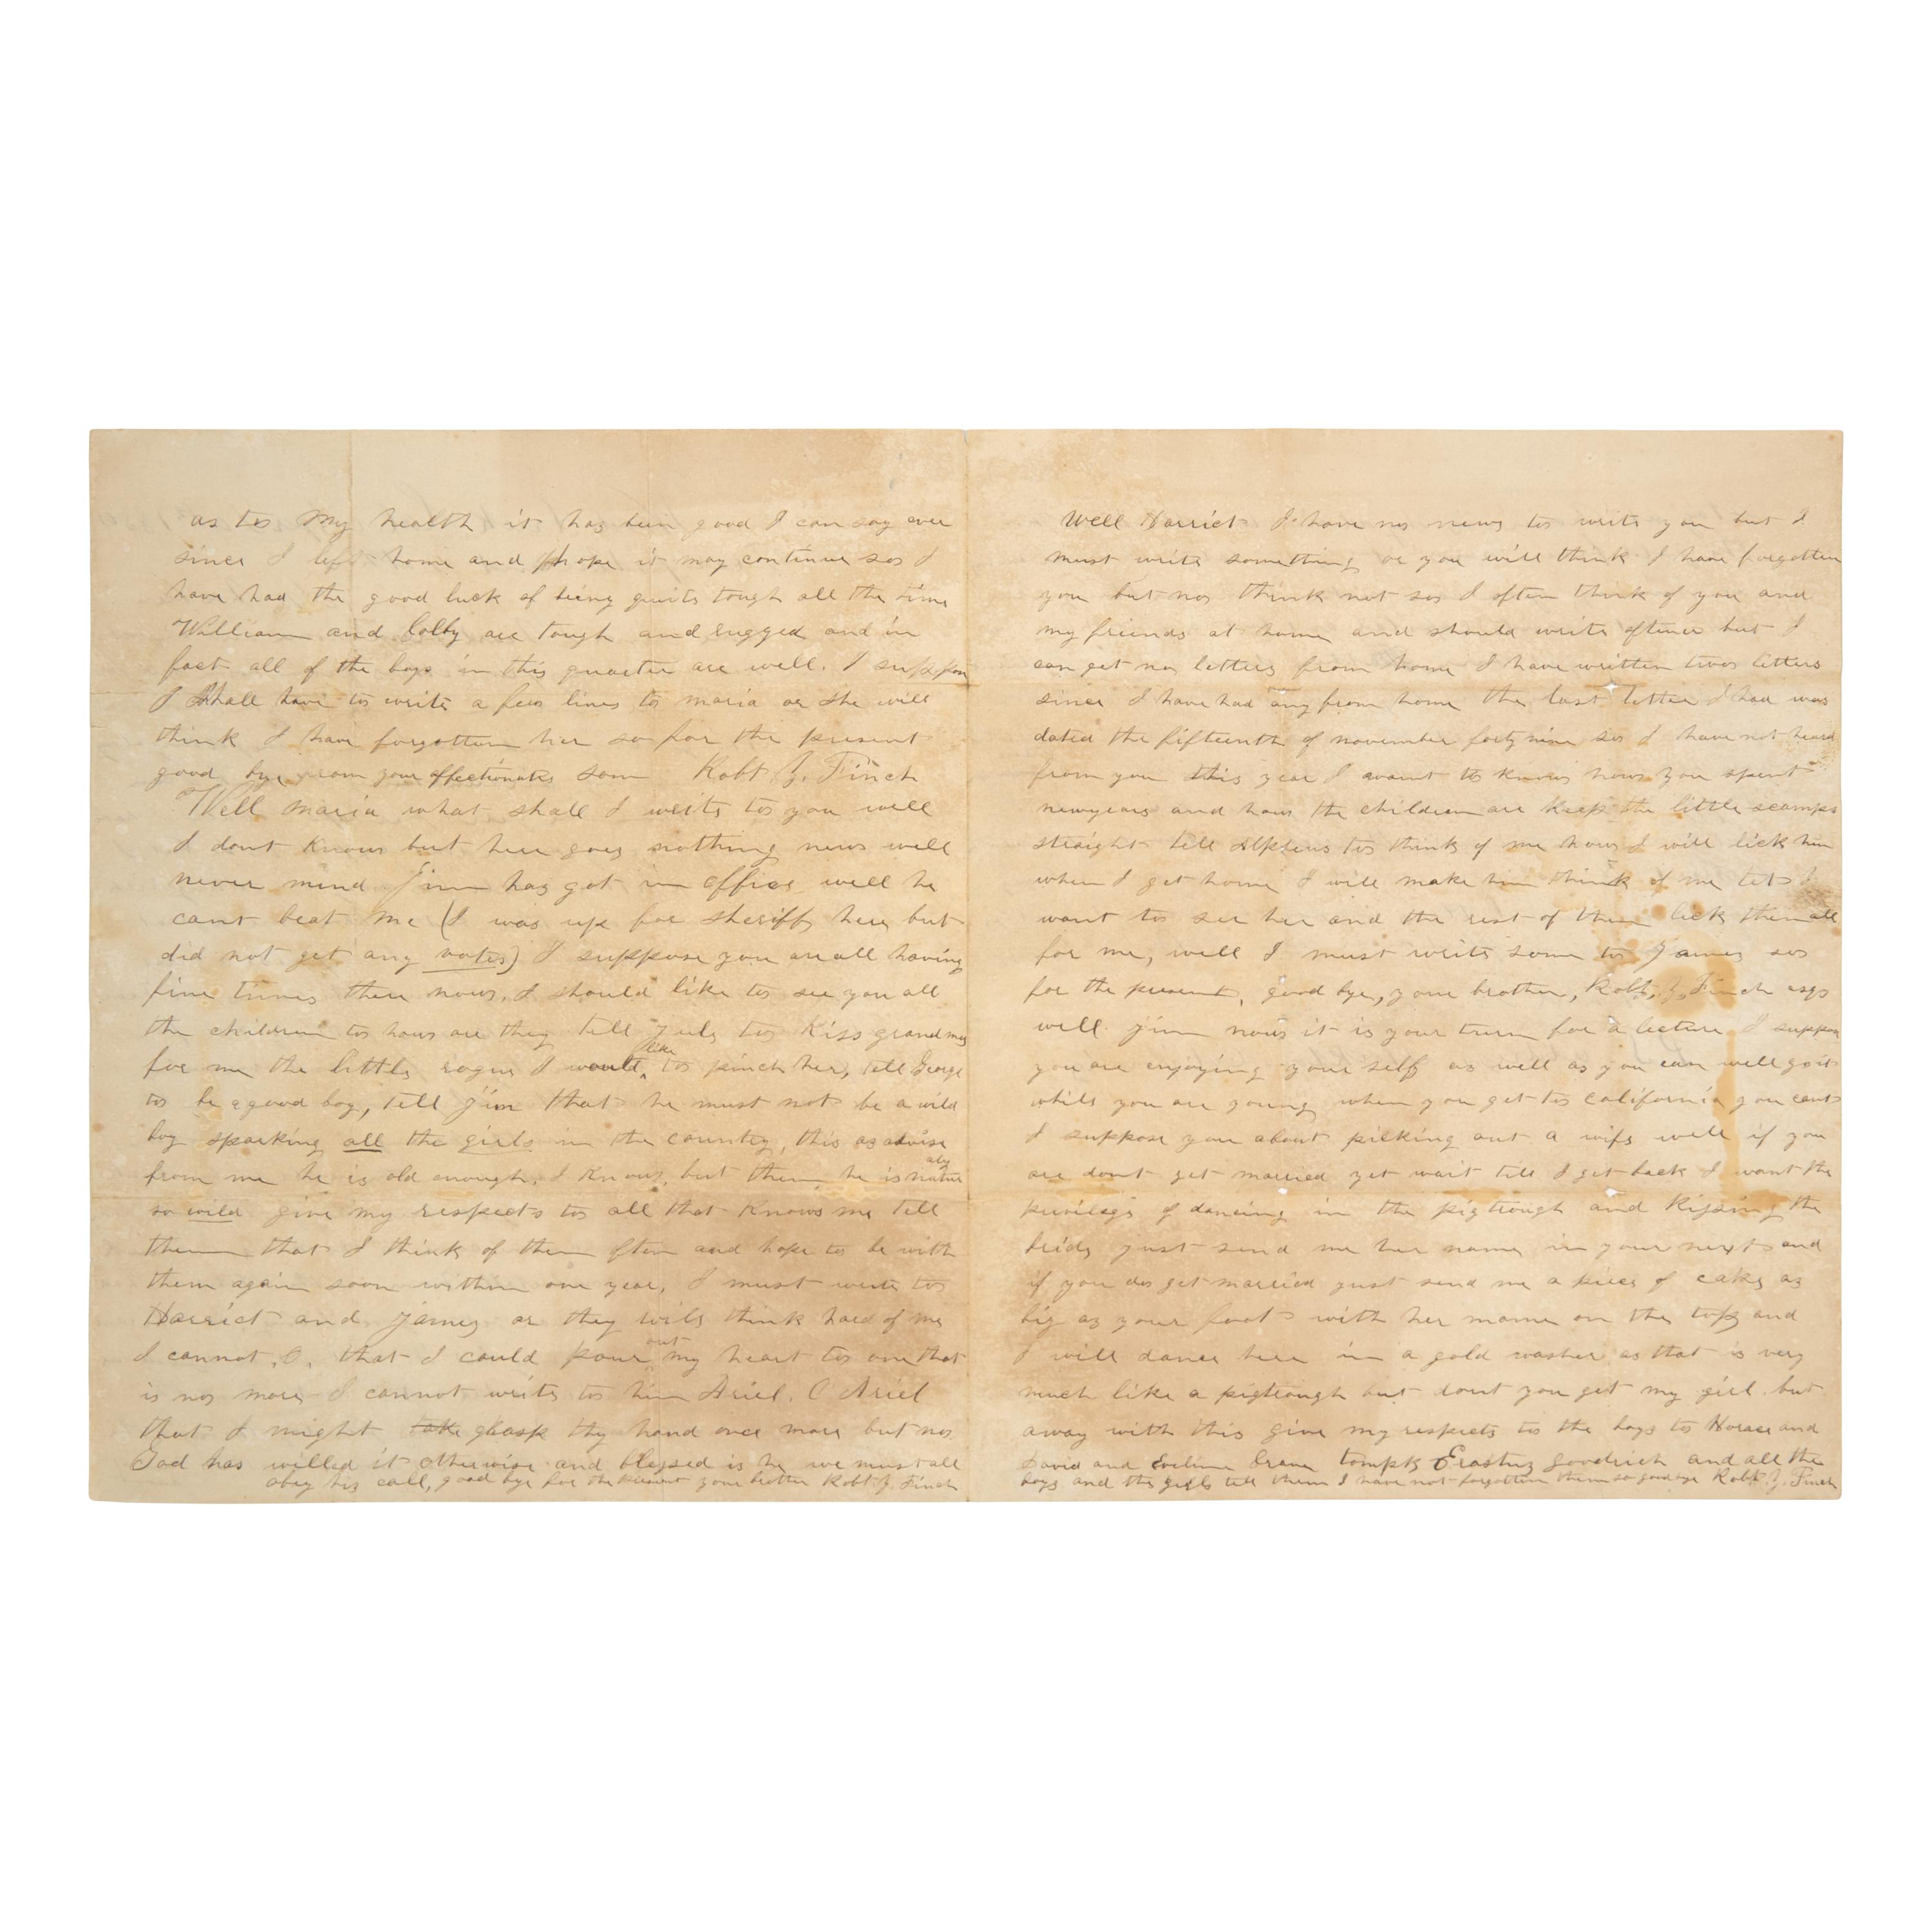 as to My health it has been good I can say ever
since I left home and hope it may continue so I
have had the good luck of being quite tough all the time
William and Colby are tough and rugged and in
fact all of the boys in this quarter are well. I suppose
I shall have to write a few lines to maria or she will
think I have forgotten her so for the present
good bye from your affectionate son Robt. J. Finch
Well maria what shall I write to you well
I dont know but here goes nothing new well
never mind Jim has got in office well he
cant beat me (I was up for sheriff here but
did not get any votes) I suppose you are all having
fine times there now, I should like to see you all
the children to how are they tell July to kiss grandma
for me the little rogue I would like to pinch her, tell George
to be a good boy, tell jim that he must not be a wild
boy sparking all the girls in the country, this as advise
from me he is old enough, I know, but then he is naturaly
so wild give my respects to all that Knows me tell
them that I think of them often and hope to be with
them again soon within one year, I must write to
Harriet and James or they will think hard of me
I cannot, O, that I could pour out my heart to one that
is no more I cannot write to him Ariel. O Ariel
that I might take ghasp thy hand once more but no
God has willed it otherwise and blessed is he we must all
obey his call, good bye for the present your brother Robt. J. Finch
Well Harriet I have no news to write you but I
must write something or you will think I have forgotten
you but no think not so I often think of you and
my friends at home and should write oftener but I
can get no letters from home I have written two letters
since I have had any from home the last letter I had was
dated the fifteenth of november forty nine so I have not heard
from you this year I want to know how you spent
newyears and how the children are keep the little scamps
straight tell Alpheus to think of me how I will lick him
when I get home I will make him think of me tet I
want to see her and the rest of them lick them all
for me, well I must write some to James so
for the present, good bye, your brother, Robt. J. Finch esqs
well jim now it is your turn for a lecture I suppose
you are enjoying your self as well as you can well go it
while you are young when you get to california you cant
I suppose you about picking out a wife well if you
are dont get married yet wait till I get back I want the
privilege of dancing in the pigtrough and kissing the
bride just send me her name in your next and
if you do get married just send me a piece of cake as
big as your foot with her name on the top and
I will dance here in a gold washer as that is very
much like a pigtrough but dont you get my girl but
away with this give my respects to the boys to Horace and
David and Eveline Crane tompks Erastus goodrich and all the
boys and the girls tell them I have not forgotten them so goodbye Robt. J. Finch